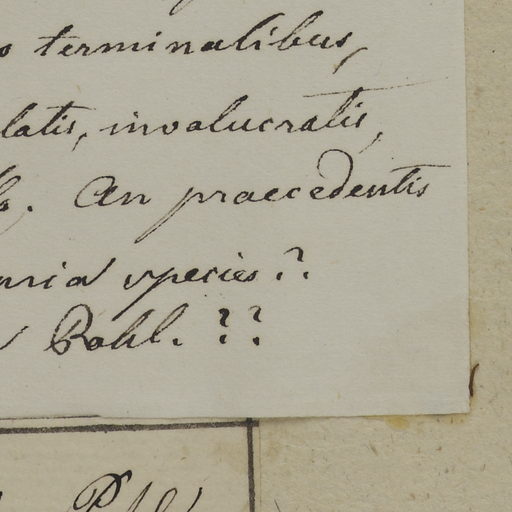 terminalibus,
latis, involucratis,
An praecedentis
species?
Pohl. ??